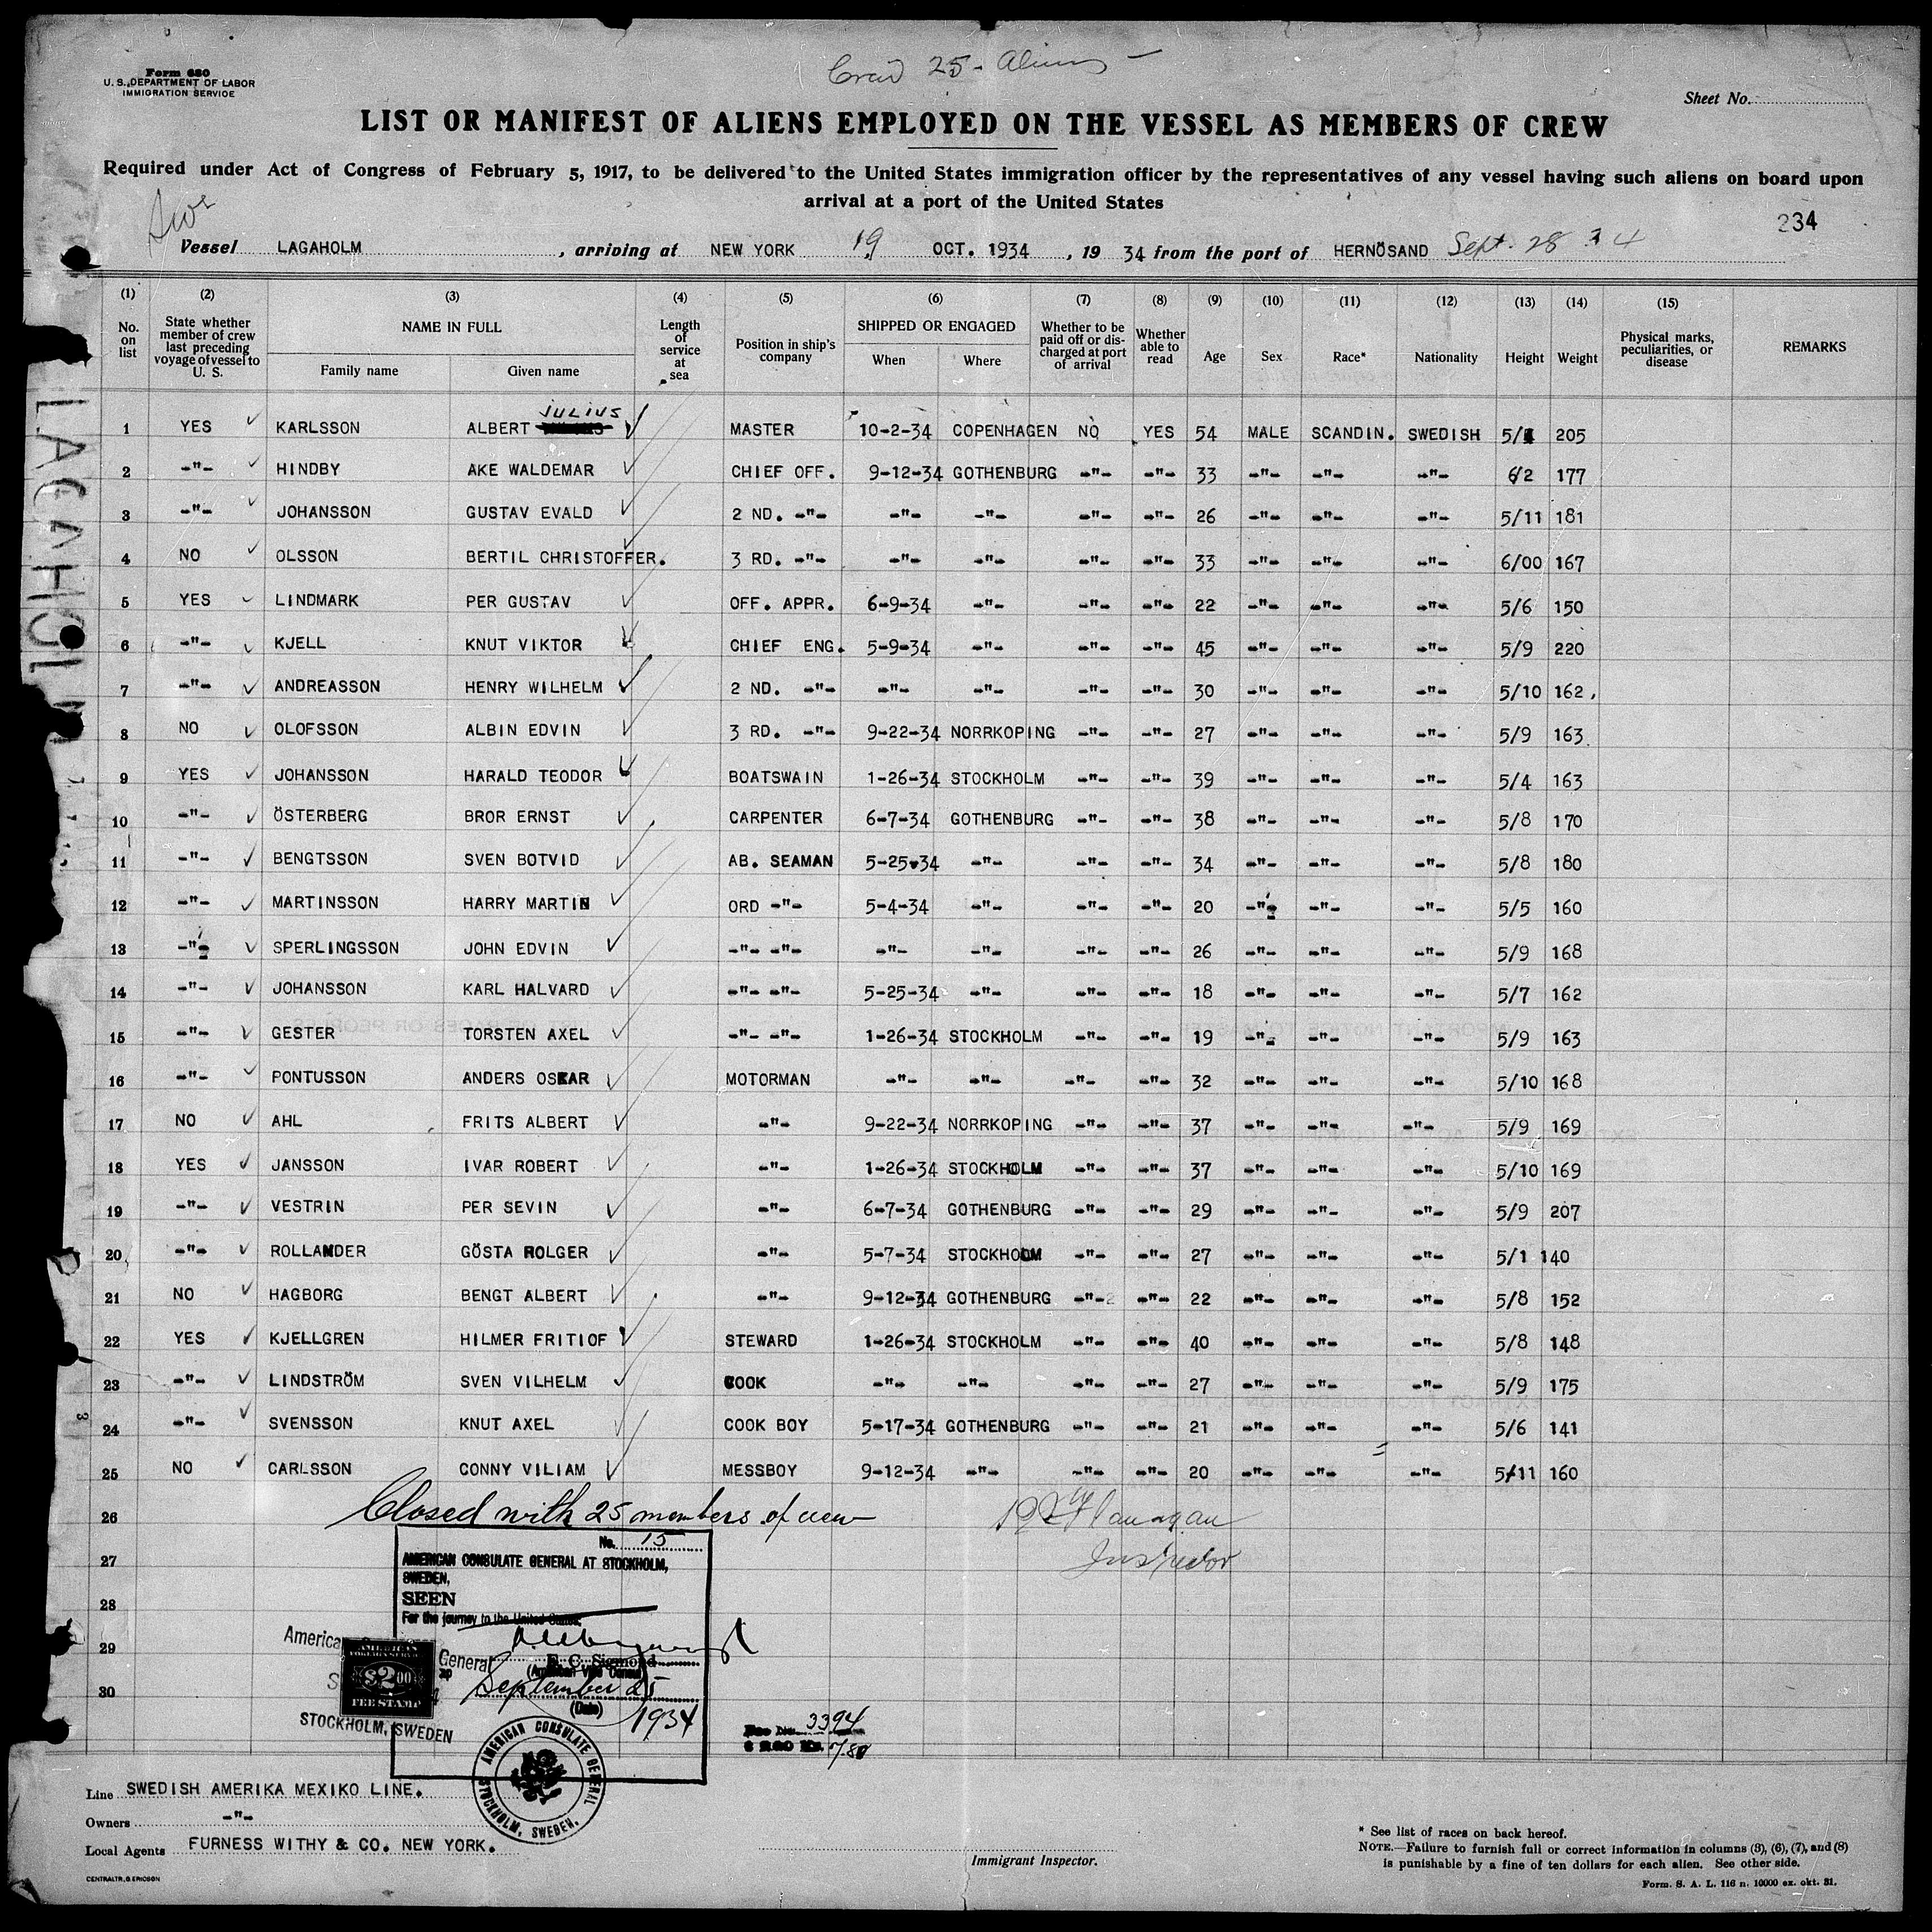 Form 680
U. S. DEPARTMENT OF LABOR
IMMIGRATION SERVICE
Crew 25 - Aliens -
Sheet No.
LIST OR MANIFEST OF ALIENS EMPLOYED ON THE VESSEL AS MEMBERS OF CREW
Required under Act of Congress of February 5, 1917, to be delivered to the United States immigration officer by the representatives of any vessel having such aliens on board upon
arrival at a port of the United States
234
Vessel LAGAHOLM , arriving at NEW YORK 19 OCT. 1934 , 19 34 from the port of HERNÖSAND Sept. 28 34
(1) (2) (3) (4) (5) (6) (7) (8) (9) (10) (11) (12) (13) (14) (15)
No. on list State whether member of crew last preceding voyage of vessel to U. S. NAME IN FULL Family name Given name Length of service at sea Position in ship's company SHIPPED OR ENGAGED When Where Whether to be paid off or discharged at port of arrival Whether able to read Age Sex Race* Nationality Height Weight Physical marks, peculiarities, or disease REMARKS
LAGAHOL
JULIUS
1 YES KARLSSON ALBERT MASTER 10-2-34 COPENHAGEN NO YES 54 MALE SCANDIN. SWEDISH 5/ 205
2 -"- HINDBY AKE WALDEMAR CHIEF OFF. 9-12-34 GOTHENBURG -"- -"- 33 -"- -"- -"- 6/2 177
3 -"- JOHANSSON GUSTAV EVALD 2 ND. -"- -"- -"- -"- -"- 26 -"- -"- -"- 5/11 181
4 NO OLSSON BERTIL CHRISTOFFER. 3 RD. -"- -"- -"- -"- -"- 33 -"- -"- -"- 6/00 167
5 YES LINDMARK PER GUSTAV OFF. APPR. 6-9-34 -"- -"- -"- 22 -"- -"- -"- 5/6 150
6 -"- KJELL KNUT VIKTOR CHIEF ENG. 5-9-34 -"- -"- -"- 45 -"- -"- -"- 5/9 220
7 -"- ANDREASSON HENRY WILHELM 2 ND. -"- -"- -"- -"- -"- 30 -"- -"- -"- 5/10 162
8 NO OLOFSSON ALBIN EDVIN 3 RD. -"- 9-22-34 NORRKOPING -"- -"- 27 -"- -"- -"- 5/9 163
9 YES JOHANSSON HARALD TEODOR BOATSWAIN 1-26-34 STOCKHOLM -"- -"- 39 -"- -"- -"- 5/4 163
10 -"- ÖSTERBERG BROR ERNST CARPENTER 6-7-34 GOTHENBURG -"- -"- 38 -"- -"- -"- 5/8 170
11 -"- BENGTSSON SVEN BOTVID AB. SEAMAN 5-25-34 -"- -"- -"- 34 -"- -"- -"- 5/8 180
12 -"- MARTINSSON HARRY MARTIN ORD -"- 5-4-34 -"- -"- -"- 20 -"- -"- -"- 5/5 160
13 -"- SPERLINGSSON JOHN EDVIN -"- -"- -"- -"- -"- -"- 26 -"- -"- -"- 5/9 168
14 -"- JOHANSSON KARL HALVARD -"- -"- 5-25-34 -"- -"- -"- 18 -"- -"- -"- 5/7 162
15 -"- GESTER TORSTEN AXEL -"- -"- 1-26-34 STOCKHOLM -"- -"- 19 -"- -"- -"- 5/9 163
16 -"- PONTUSSON ANDERS OSKAR MOTORMAN -"- -"- -"- -"- 32 -"- -"- -"- 5/10 168
17 NO AHL FRITS ALBERT -"- 9-22-34 NORRKOPING -"- -"- 37 -"- -"- -"- 5/9 169
18 YES JANSSON IVAR ROBERT -"- 1-26-34 STOCKHOLM -"- -"- 37 -"- -"- -"- 5/10 169
19 -"- VESTRIN PER SEVIN -"- 6-7-34 GOTHENBURG -"- -"- 29 -"- -"- -"- 5/9 207
20 -"- ROLLANDER GÖSTA HOLGER -"- 5-7-34 STOCKHOLM -"- -"- 27 -"- -"- -"- 5/1 140
21 NO HAGBORG BENGT ALBERT -"- 9-12-34 GOTHENBURG -"- -"- 22 -"- -"- -"- 5/8 152
22 YES KJELLGREN HILMER FRITIOF STEWARD 1-26-34 STOCKHOLM -"- -"- 40 -"- -"- -"- 5/8 148
23 -"- LINDSTRÖM SVEN VILHELM COOK -"- -"- -"- -"- 27 -"- -"- -"- 5/9 175
24 -"- SVENSSON KNUT AXEL COOK BOY 5-17-34 GOTHENBURG -"- -"- 21 -"- -"- -"- 5/6 141
25 NO CARLSSON CONNY VILIAM MESSBOY 9-12-34 -"- -"- -"- 20 -"- -"- -"- 5/11 160
Closed with 25 members of crew
26 Flanagan
27 Inspector
28
29
30
No. 15
AMERICAN CONSULATE GENERAL AT STOCKHOLM,
SWEDEN,
SEEN
For the journey to the United States.
E. C. Sigmond
(American Vice Consul)
September 25
(Date)
1934
General
AMERICAN FOREIGN SERVICE
$2.00
FEE STAMP
STOCKHOLM, SWEDEN
AMERICAN CONSULATE GENERAL STOCKHOLM, SWEDEN.
Fee No. 3394
7.80
Line SWEDISH AMERIKA MEXIKO LINE.
Owners -"-
Local Agents FURNESS WITHY & CO. NEW YORK.
CENTRALTR. G. ERICSON
Immigrant Inspector.
* See list of races on back hereof.
NOTE.—Failure to furnish full or correct information in columns (3), (6), (7), and (8)
is punishable by a fine of ten dollars for each alien. See other side.
Form. S. A. L. 116 n. 10000 ex. okt. 31.